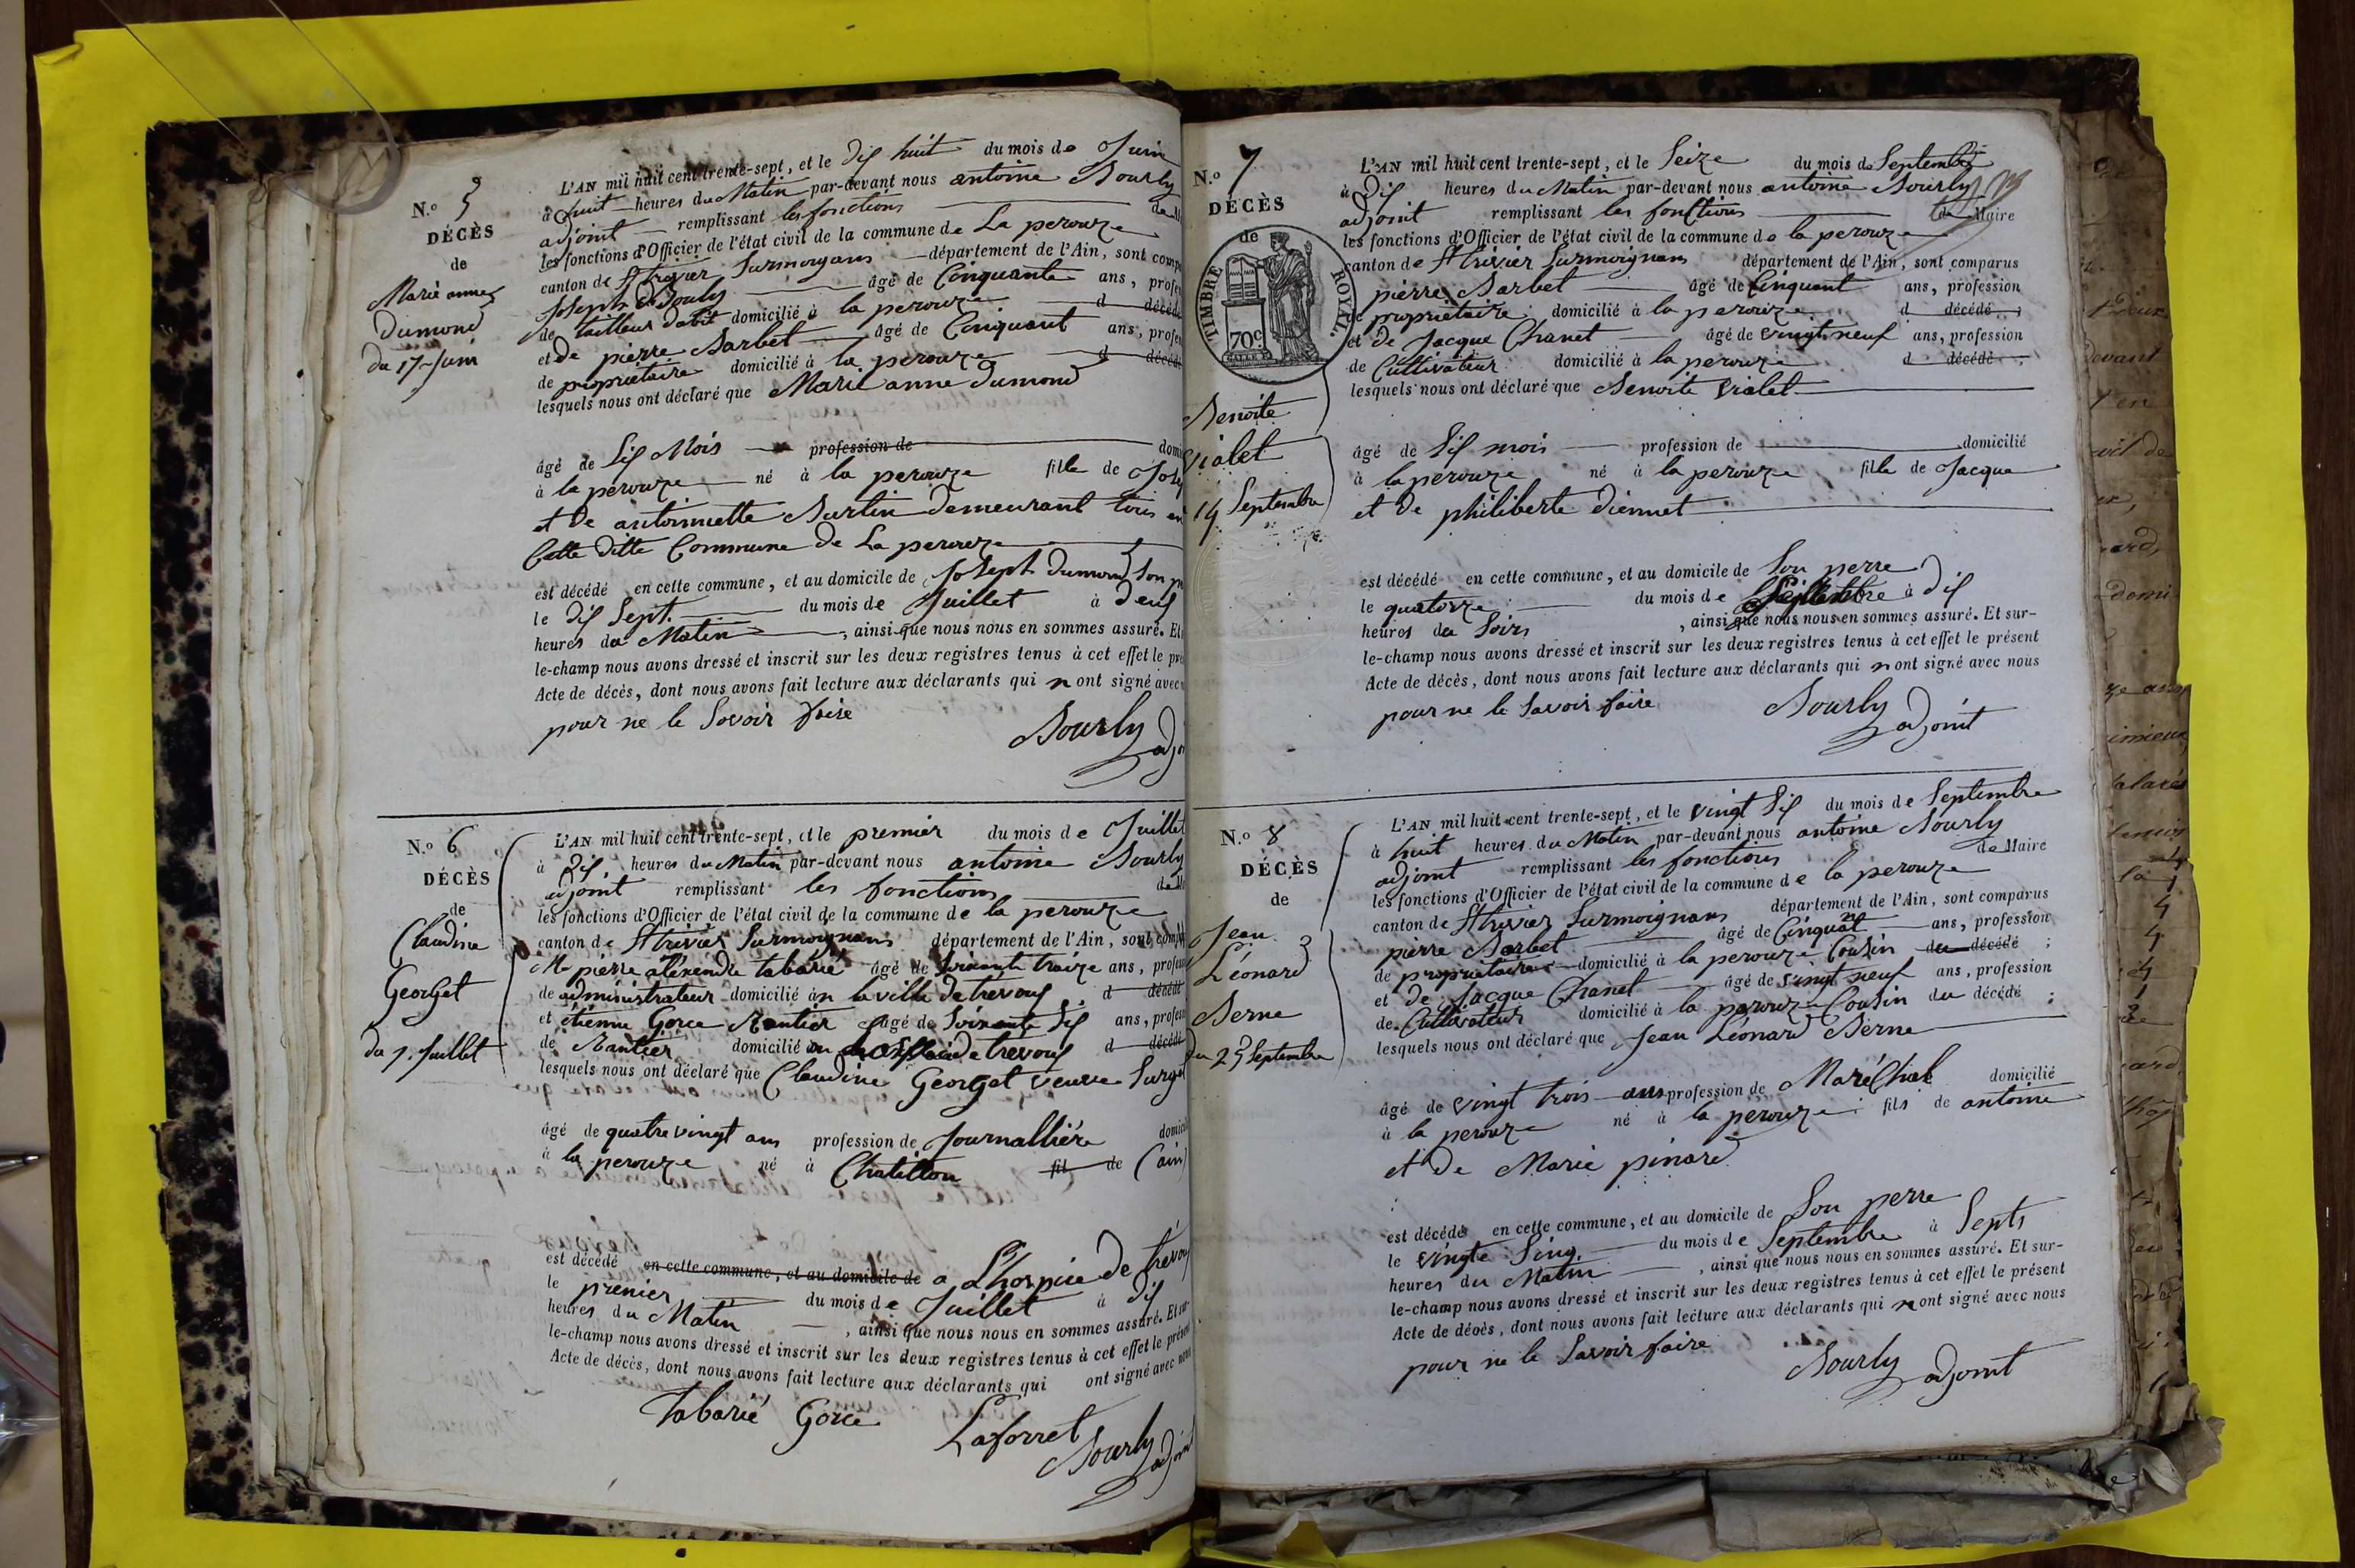 N.o 5
DÉCÈS
de
Marie anne
Dumond
du 17 Juin
L'AN mil huit cent trente-sept, et le dix huit du mois de Juin
à huit heures du Matin par-devant nous antoine Bourly
adjoint remplissant les fonctions
les fonctions d'Officier de l'état civil de la commune de La perouze
canton de St trivier Surmoignans département de l'Ain, sont comp
Joseph Bouly âgé de Cinquante ans, profes
de tailleur dabit domicilié à la perouze d décédé
et de pierre Barbet âgé de Cinquant ans, profes
de propriétaire domicilié à la perouze d décédé
lesquels nous ont déclaré que Marie anne Dumond
âgé de Six Mois profession de domi
à la perouze né à la perouze fille de Jose
et de antoinette Burtin demeurant tous en
Cette ditte Commune de La perouze
est décédé en cette commune, et au domicile de Joseph Dumond Son p
le dix Sept. du mois de Juillet à deux
heures du Matin, ainsi que nous nous en sommes assuré. Et
le-champ nous avons dressé et inscrit sur les deux registres tenus à cet effet le pré
Acte de décès, dont nous avons fait lecture aux déclarants qui n ont signé avec
pour ne le Savoir faire
Bourly adjo
N.o 6
DÉCÈS
de
Claudine
Georget
du 1. Juillet
L'AN mil huit cent trente-sept, et le premier du mois de Juillet
à dix heures du Matin par-devant nous antoine Bourly
adjoint remplissant les fonctions
les fonctions d'Officier de l'état civil de la commune de la perouze
canton de St trivier Surmoignans département de l'Ain, sont comp
Mr pierre alexendre tabarié âgé de Soixante traize ans, profes
de administrateur domicilié à n la ville de trevoux d décédé
et étienne Gorce Rantier âgé de Soixante Six ans, profes
de Rantier domicilié de trevoux d décédé
lesquels nous ont déclaré que Claudine Georget veuve
âgé de quatre vingt ans profession de Journallière domici
à la perouze né à Chatillon fil de (ain)
est décédé en cette commune, et au domicile de a L'hospice de trevou
le premier du mois de Juillet à dix
heures du Matin, ainsi que nous nous en sommes assuré. Et sur-
le-champ nous avons dressé et inscrit sur les deux registres tenus à cet effet le présent
Acte de décès, dont nous avons fait lecture aux déclarants qui ont signé avec nous
tabarié Gorce Laforret
Bourly adjoint
N.o 7
DÉCÈS
de
TIMBRE ROYAL.
70c
Benoite
Vialet
14 Septembre
L'AN mil huit cent trente-sept, et le Seize du mois de Septembre
à dix heures du Matin par-devant nous antoine Bourly
adjoint remplissant les fonctions de Maire
les fonctions d'Officier de l'état civil de la commune de la perouze
canton de St trivier Surmoignans département de l'Ain, sont comparus
pierre Barbet âgé de Cinquant ans, profession
de propriétaire domicilié à la perouze d décédé ;
et de Jacque Chanet âgé de vingt neuf ans, profession
de Cultivateur domicilié à la perouze d décédé ;
lesquels nous ont déclaré que Benoite Vialet
âgé de Six mois profession de domicilié
à la perouze né à la perouze fille de Jacque
et de philiberte diennet
est décédé en cette commune, et au domicile de Son perre
le quatorze du mois de Septembre à dix
heures du Soirs, ainsi que nous nous en sommes assuré. Et sur-
le-champ nous avons dressé et inscrit sur les deux registres tenus à cet effet le présent
Acte de décès, dont nous avons fait lecture aux déclarants qui n ont signé avec nous
pour ne le Savoir faire
Bourly adjoint
N.o 8
DÉCÈS
de
Jean
Léonard
Berne
du 25 Septembre
L'AN mil huit cent trente-sept, et le vingt Six du mois de Septembre
à huit heures du Matin par-devant nous antoine Bourly
adjoint remplissant les fonctions de Maire
les fonctions d'Officier de l'état civil de la commune de la perouze
canton de St trivier Surmoignans département de l'Ain, sont comparus
pierre Barbet âgé de Cinquant ans, profession
de propriétaire domicilié à la perouze Cousin du décédé ;
et de Jacque Chanet âgé de vingt neuf ans, profession
de Cultivateur domicilié à la perouze Cousin du décédé ;
lesquels nous ont déclaré que Jean Léonard Berne
âgé de vingt trois ans profession de Maréchal domicilié
à la perouze né à la perouze fils de antoine
et de Marie pinard
est décédé en cette commune, et au domicile de Son perre
le vingte Sinq. du mois de Septembre à Septs
heures du Matin, ainsi que nous nous en sommes assuré. Et sur-
le-champ nous avons dressé et inscrit sur les deux registres tenus à cet effet le présent
Acte de décès, dont nous avons fait lecture aux déclarants qui n ont signé avec nous
pour ne le Savoir faire
Bourly adjoint